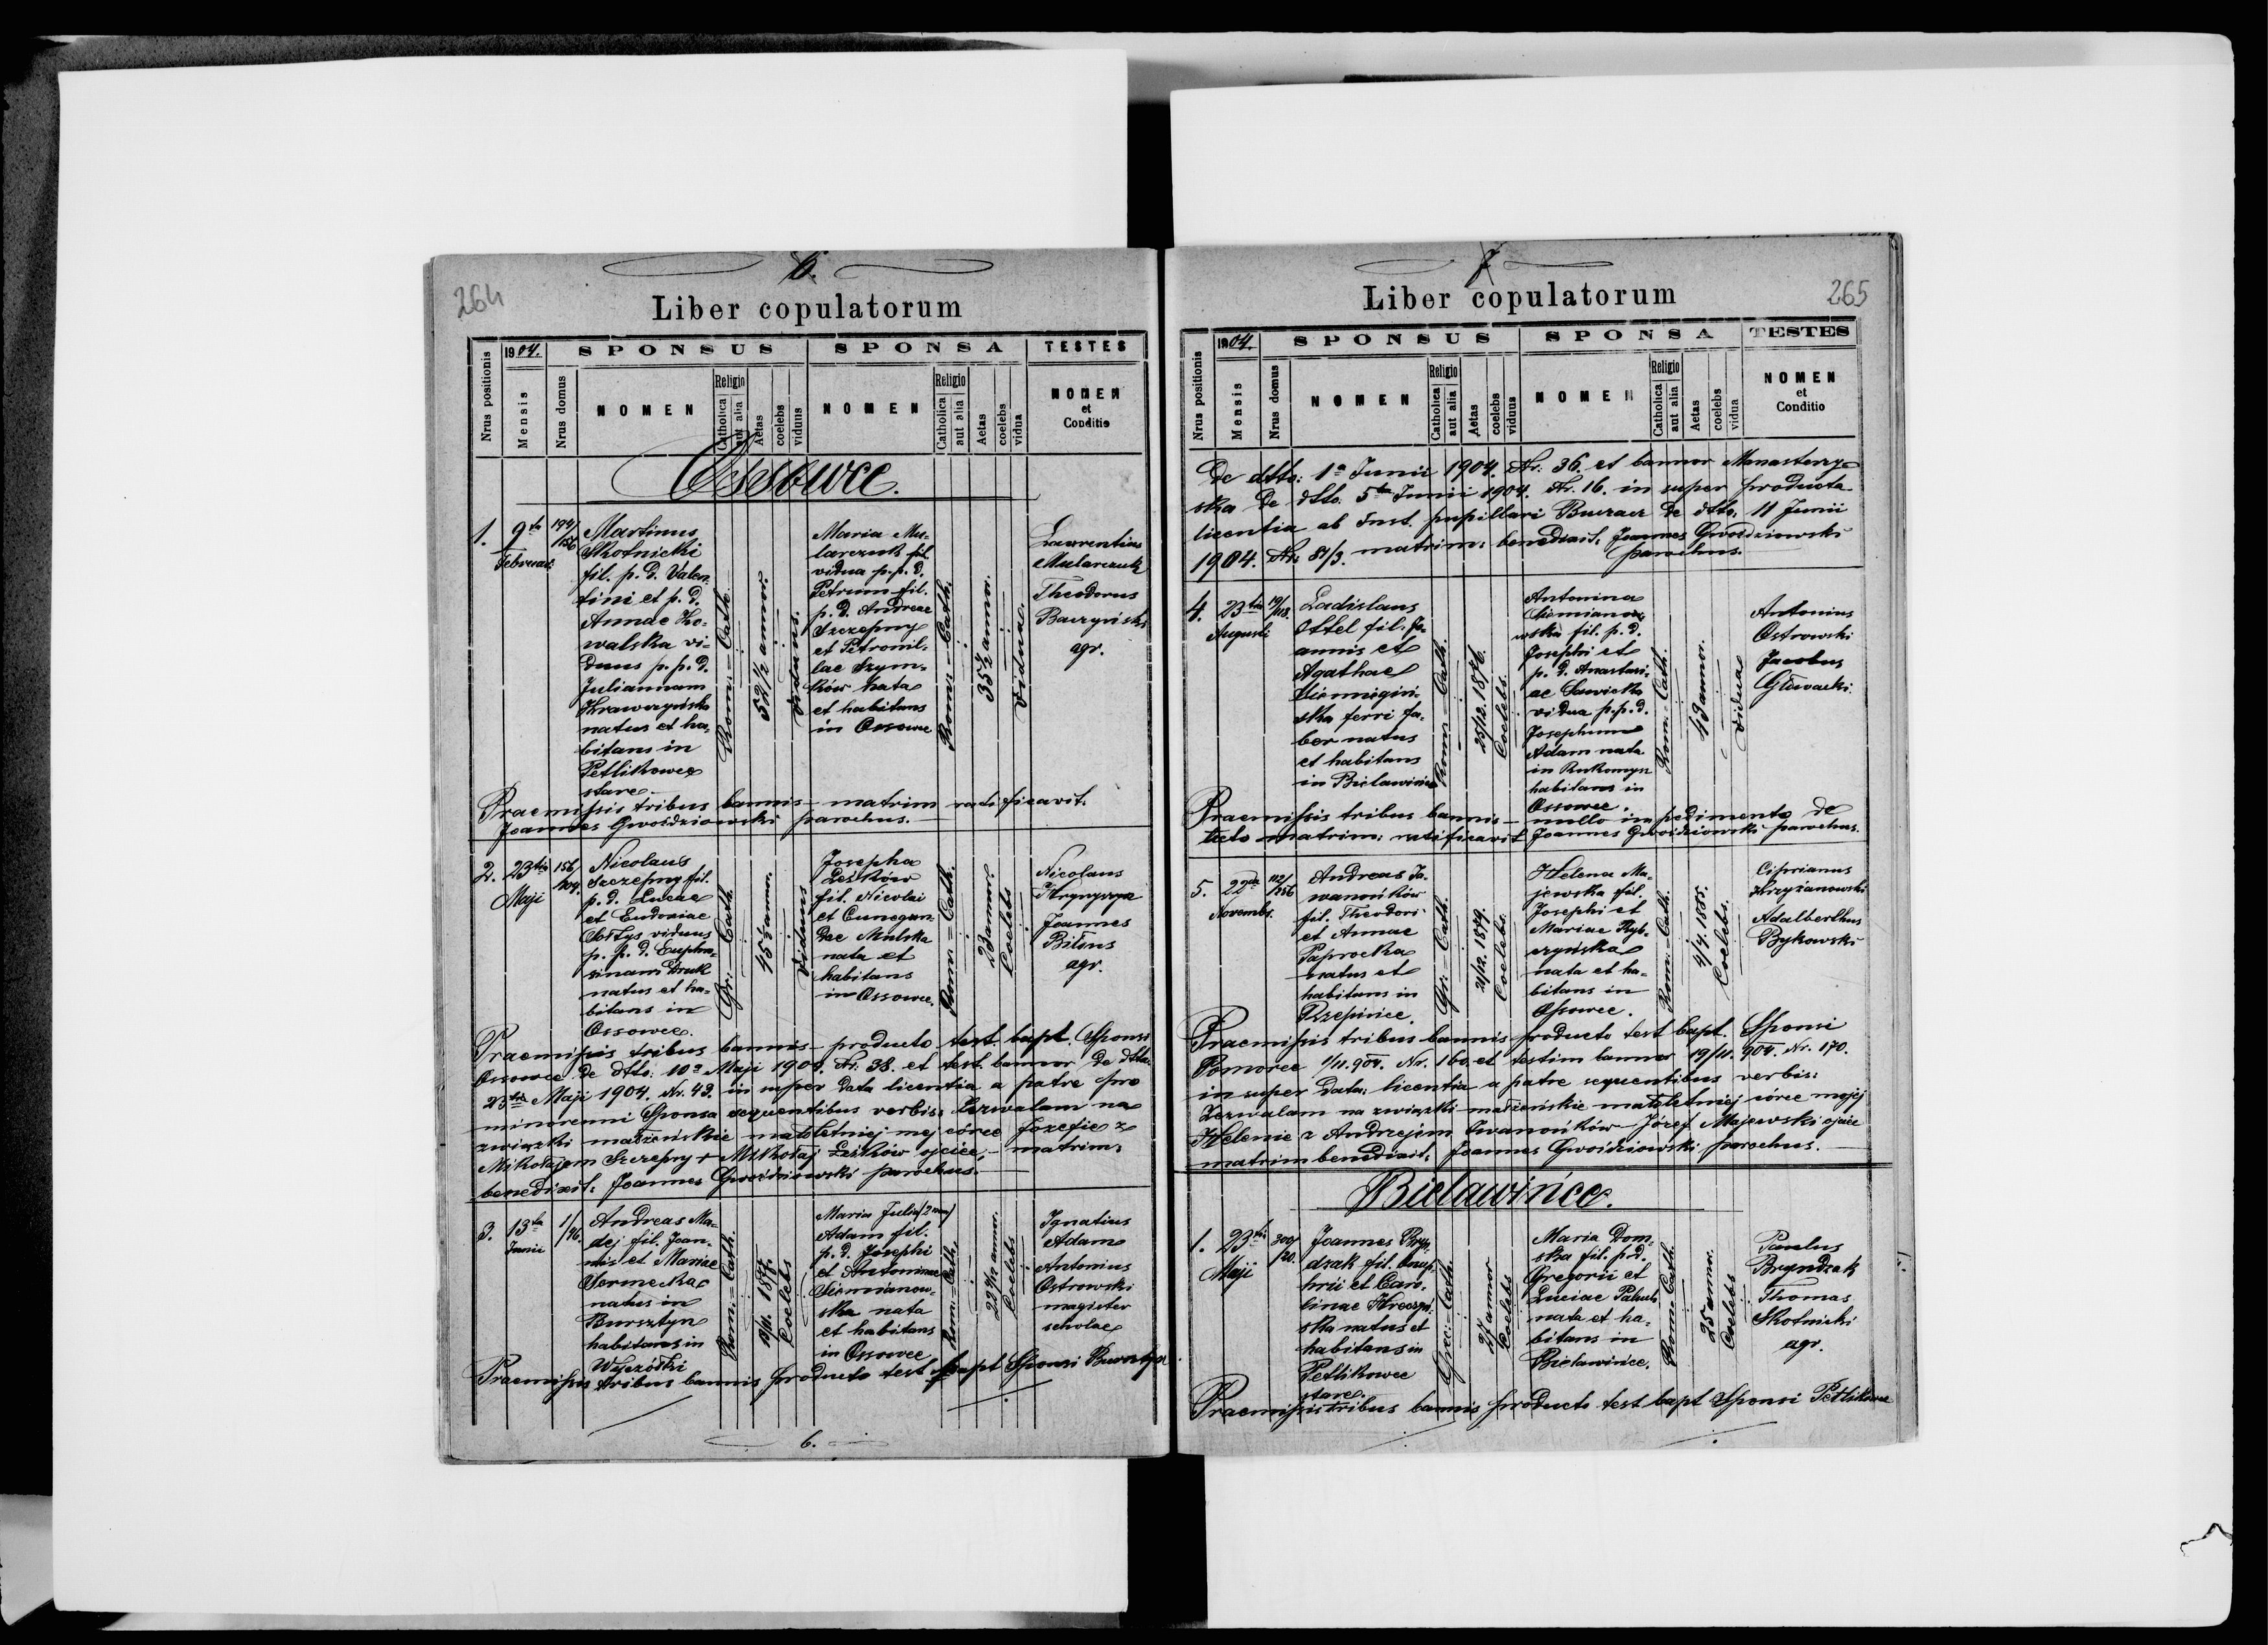 264
6.
Liber copulatorum
Nrus positionis
1904.
Mensis
Nrus domus
SPONSUS
NOMEN
Religio
Catholica
aut alia
Aetas
coelebs
viduus
SPONSA
NOMEN
Religio
Catholica
aut alia
Aetas
coelebs
vidua
TESTES
NOMEN
et
Conditio
Ossowce.
1.
9ta
Februar.
194/
156
Martinus
Skotnicki
fil. p. d. Valen-
tini et p. d.
Annae Ko-
walska vi-
duus p. p. d.
Juliannam
Krawczyńska
natus et ha-
bitans in
Petlikowce
stare.
Rom. = Cath.
52 1/2 annor.
Viduus.
Maria Mu-
larczuk fil.
vidua p. p. d.
Petrum fil.
p. d. Andreae
Szczepny
et Petronil-
lae Szym-
ków nata
et habitans
in Ossowce
Rom. = Cath.
35 1/2 annor.
Vidua.
Laurentius
Mularczuk
Theodorus
Baczyński
agr.
Praemissis tribus bannis – matrim ratificavit.
Joannes Gwoździowski parochus.
2.
23tia
Maji
156/
109.
Nicolaus
Szczepny fil.
p. d. Lucae
et Eudoxiae
Sołtys viduus
p. p. d. Euphro-
sinam Druk
natus et ha-
bitans in
Ossowce.
Gr. = Cath.
45 1/2 annor.
Viduus
Josepha
Leśków
fil. Nicolai
et Cunegun-
dae Mulska
nata et
habitans
in Ossowce.
Rom. = Cath.
23 annor.
Coelebs
Nicolaus
Joannes
Bilous
agr.
Praemissis tribus bannis – producto test. bapt. Sponsi
Ossowce de dtto: 10a Maji 1904. Nr: 38. et test. bannor de dtto
23tia Maji 1904. Nr. 42. in super data licentia a patre pro
minorenni Sponsa sequentibus verbis: Zezwalam na
związki małżeńskie małoletniej mej córce Józefie z
Mikołajem Szczepny + Mikołaj Leśków ojciec, – matrim.
benedixit. Joannes Gwoździowski parochus.
3.
13ta
Junii
1/
96.
Andreas Ma-
dej fil. Joan-
nis et Mariae
natus in
Bursztyn
habitans in
Wyczółki
Rom. = Cath.
Coelebs
Maria Julia /2 nom/
Adam fil.
p. d. Josephi
et Antoninae
Siemianow-
ska nata
et habitans
in Ossowce
Rom. = Cath.
Coelebs
Ignatius
Adam
Antonius
Ostrowski
magister
scholae
Praemissis tribus bannis producto test bapt Sponsi Bursztyn
6.
7
265
Liber copulatorum
Nrus positionis
1904.
Mensis
Nrus domus
SPONSUS
NOMEN
Religio
Catholica
aut alia
Aetas
coelebs
viduus
SPONSA
NOMEN
Religio
Catholica
aut alia
Aetas
coelebs
vidua
TESTES
NOMEN
et
Conditio
de dtto: 1a Junii 1904. Nr: 36. et bannor Monasterzy-
ska de dtto. 5ta Junii 1904. Nr. 16. in super producta
licentia ab Inst. pupillari Buczacz de dtto. 11 Junii
1904. Nr. 81/3. matrim: benedixit. Joannes Gwoździowski
parochus.
4.
23tia
Augusti
19/
118.
Ladislaus
Ottel fil. Jo-
annis et
Agathae
ska ferri fa-
ber natus
et habitans
in Bielawińce
Rom. = Cath.
25/12. 1876.
Coelebs.
Antonina
Siemiano-
wska fil. p. d.
Josephi et
p. d. Anastasi-
ae Sawicka
vidua p. p. d.
Josephum
Adam nata
in Rukomysz
habitans in
Ossowce.
Rom. = Cath.
43 annor.
Vidua
Antonius
Ostrowski
Jacobus
Głowacki.
Praemissis tribus bannis – nullo impedimento de
tecto matrim: ratificavit Joannes Gwoździowski parochus.
5.
22da
Novembr.
112/
256
Andreas Iwanońków
fil. Theodori
et Annae
Paprocka
natus et
habitans in
Rzepińce.
Gr. = Cath.
21/12. 1879.
Coelebs.
Helena Ma-
jewska fil.
Josephi et
Mariae Ryb-
czyńska
nata et ha-
bitans in
Ossowce.
Rom. = Cath.
4/4. 1885.
Coelebs.
Ciprianus
Krzyżanowski
Adalberthus
Bykowski
Praemissis tribus bannis producto test bapt. Sponsi
Pomorce 1/11. 904. Nr. 160. et testim bannor 19/11. 904. Nr. 170.
in super data: licentia a patre sequentibus verbis:
Zezwalam na związki małżeńskie małoletniej córce mojej
Helenie z Andrzejem Iwanońków – Józef Majewski ojciec
matrim benedixit. Joannes Gwoździowski parochus.
Bielawińce.
1.
23tia
Maji
300/
20.
Joannes Bryn-
dzak fil. Onup-
hrii et Caro-
linae
ska natus et
habitans in
Petlikowce
stare.
Grec. = Cath.
24 annor
Coelebs
Maria Dom-
ska fil. p. d.
Gregorii et
Luciae
nata et ha-
bitans in
Bielawińce.
Rom. Cath.
25 annor.
Coelebs
Paulus
Bryndzak
Thomas
Skotnicki
agr.
Praemissis tribus bannis producto test bapt Sponsi Petlikowce